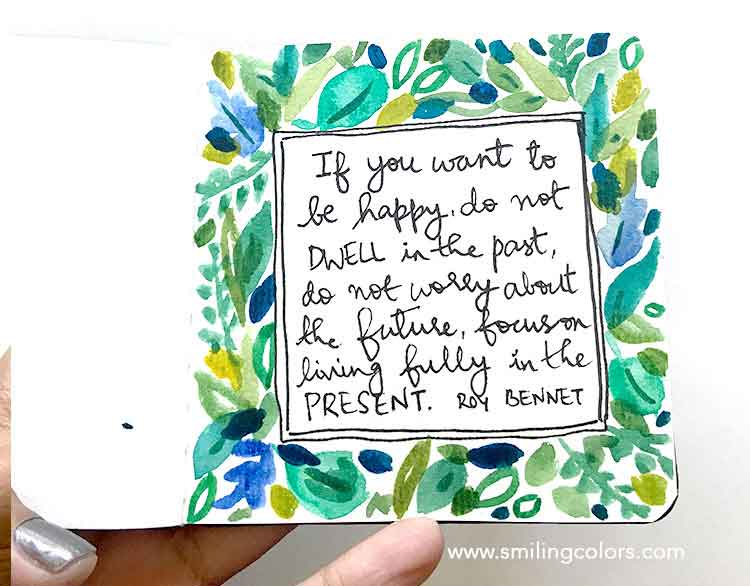 If you want to
be happy, do not
DWELL in the past,
do not worry about
the future, focus on
living fully in the
PRESENT. ROY BENNET
www.smilingcolors.com